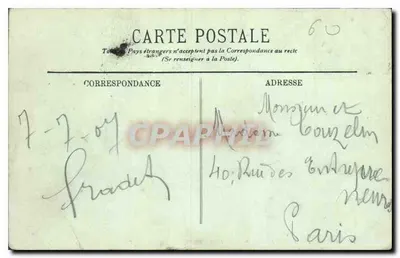 60
CARTE POSTALE
Tous les Pays étrangers n'acceptent pas la Correspondance au recto
(Se renseigner à la Poste).
CORRESPONDANCE
ADRESSE
7-7-07
Gradet
Monsieur et
Madame
40, Rue des Entrepre
neurs
Paris
CPARAMA